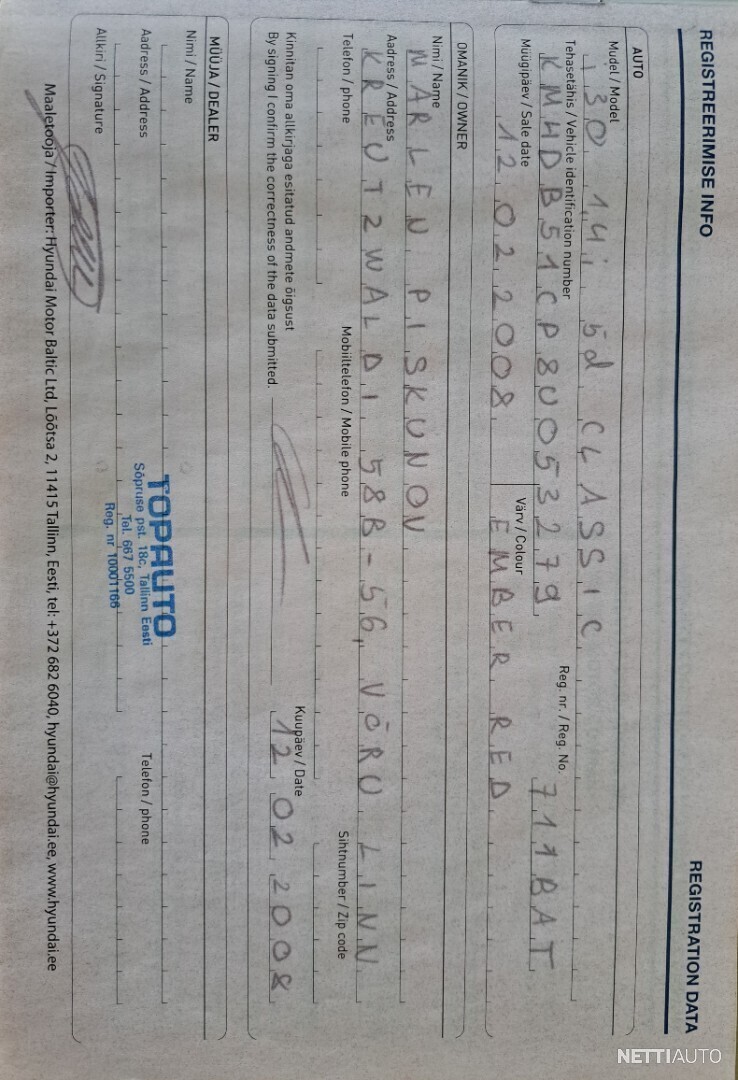 REGISTREERIMISE INFO
REGISTRATION DATA
AUTO
Mudel / Model
i30 1,4i 5d CLASSIC
Tehasetähis / Vehicle identification number
Reg. nr. / Reg. No.
KMHDB51CP8U053279
711BAT
Müügipäev / Sale date
Värv / Colour
12.02.2008
EMBER RED
OMANIK / OWNER
Nimi / Name
MARLEN PISKUNOV
Aadress / Address
KREUTZWALDI 58B-56, VÕRU LINN
Telefon / phone
Mobiiltelefon / Mobile phone
Sihtnumber / Zip code
Kinnitan oma allkirjaga esitatud andmete õigsust
By signing I confirm the correctness of the data submitted.
Kuupäev / Date
12 02 2008
MÜÜJA / DEALER
Nimi / Name
Aadress / Address
Telefon / phone
Allkiri / Signature
TOPAUTO
Sõpruse pst. 18c, Tallinn Eesti
Tel. 667 5500
Reg. nr 10001166
Maaletooja / Importer: Hyundai Motor Baltic Ltd, Lõõtsa 2, 11415 Tallinn, Eesti, tel: +372 682 6040, hyundai@hyundai.ee, www.hyundai.ee
NETTIAUTO